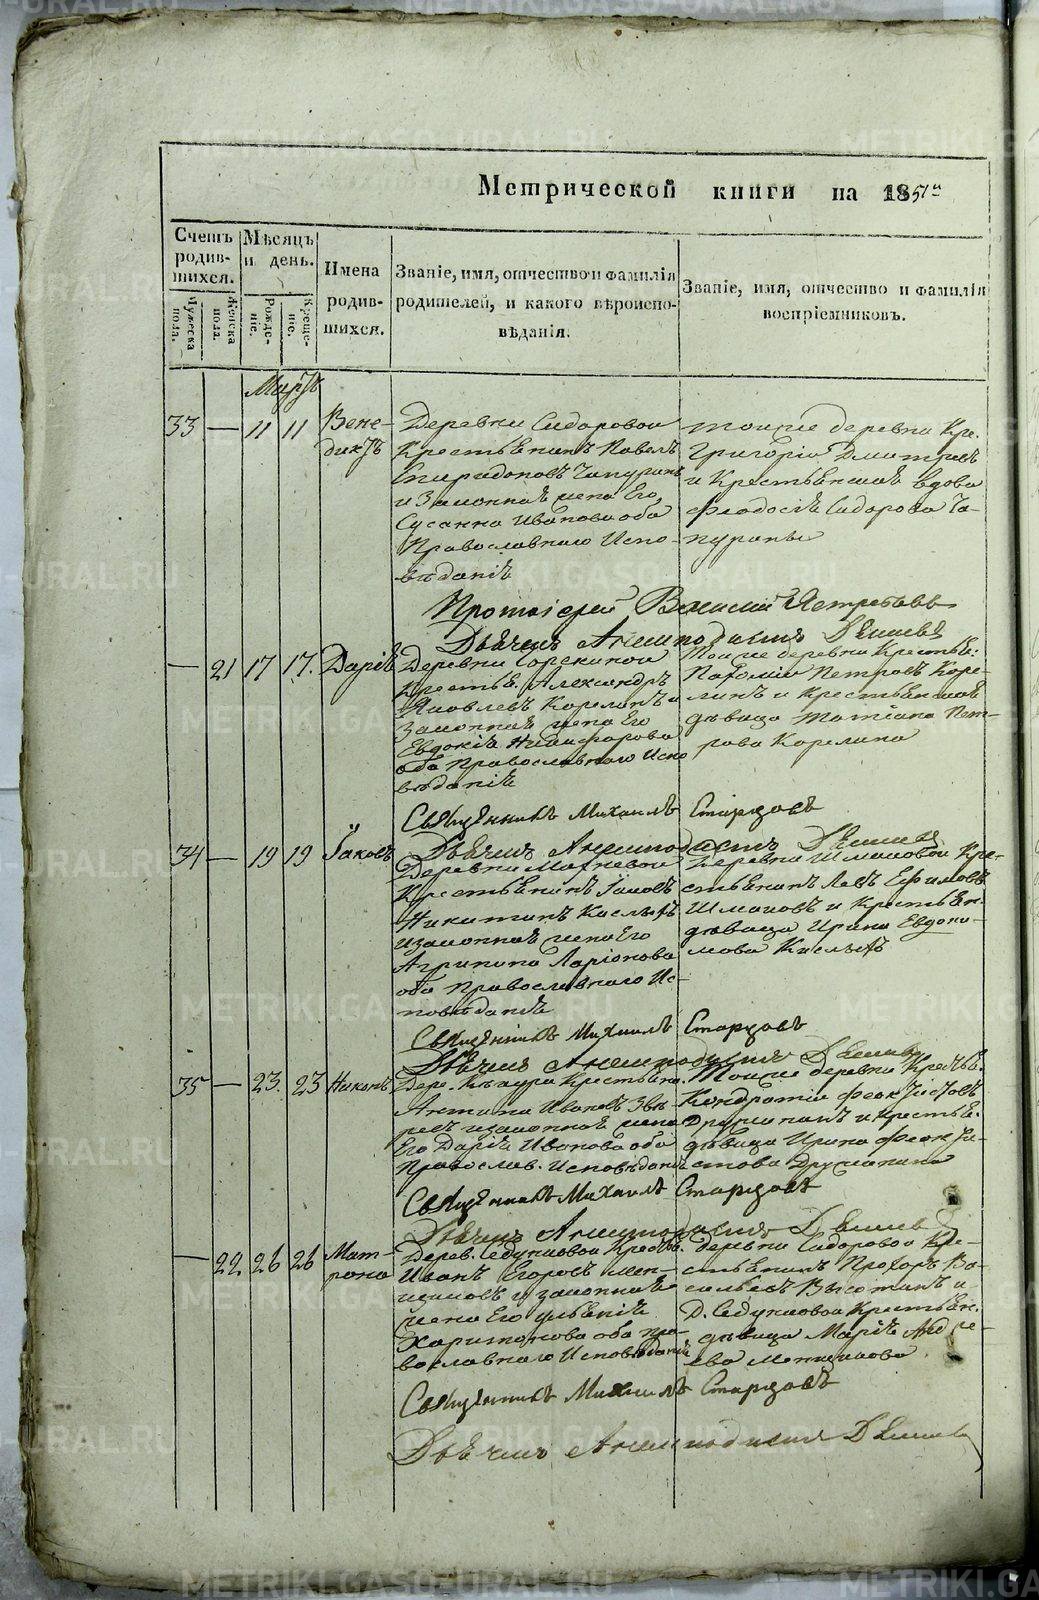 Метрической книги на 1851й
Счетъ родив-шихся.
Мужеска пола.
Женска пола.
Мѣсяцъ и день.
Рожде-ніе.
Креще-ніе.
Имена родив-шихся.
Званіе, имя, отчество и фамилія родителей, и какого вѣроиспо-вѣданія.
Званіе, имя, отчество и фамилія воспріемниковъ.
Мартъ
33 — 11 11 Вене-
диктъ
Деревни Сидоровой
Крестьянинъ Павелъ
Спиридоновъ Чапуринъ
и Законная жена Его
Сусанна Иванова оба
Православнаго Испо-
вѣданія
тойже деревни Кре.
Григорій Дмитріевъ
и Крестьянская вдова
Феодосія Сидорова Ча-
пурины
Протоіерей Василій Ястребовъ
Дьячикъ Анемподистъ
— 21 17 17. Дарія
Деревни Сорокиной
Крестья. Александръ
Яковлевъ Корелинъ и
Законная жена Его
Евдокія Никифорова
оба Православнаго Испо
вѣданія
Тойже деревни Крестья.
Пахомій Петровъ Коре-
линъ и Крестьянская
дѣвица Татіана Пет-
рова Корелина
Священникъ Михаилъ Старцовъ
Дьячикъ Анемподистъ
34 — 19 19 Іаковъ
Деревни
Крестьянинъ Іаковъ
Никитинъ Кислыхъ
и законная жена Его
Агрипина Ларіонова
оба Православнаго Ис-
повѣданія
Деревни Шмаковой Кре-
стьянинъ Левъ Ефимовъ
Шмаковъ и Крестьян.
дѣвица Ирина Евдоки-
мова Кислыхъ
Священникъ Михаилъ Старцовъ
Дьячикъ Анемподистъ
35 — 23. 23 Никонъ
Дере. Крестьяни.
Антипа Ивановъ Звѣ-
ревъ и законная жена
Его Дарія Иванова оба
Православ. Исповѣданія
Тойже деревни Крестья.
Кондратій Феоктистовъ
и Крестья.
дѣвица Ирина Феокти-
стова
Священникъ Михаилъ Старцовъ
Дьячикъ Анемподистъ
— 22 26 26 Мат-
рона
Дерев. Седунковой Крестья.
Иванъ Егоровъ Мен-
щиковъ и законная
жена Его Ульянія
Харитонова оба пра-
вославнаго Исповѣданія
деревни Сидоровой Кре-
стьянинъ Прохоръ Ва-
сильевъ и
Д. Седунковой Крестьян.
дѣвица Марія Андре-
ева Менщикова
Священникъ Михаилъ Старцовъ
Дьячикъ Анемподистъ
METRIKI.GASO-URAL.RU